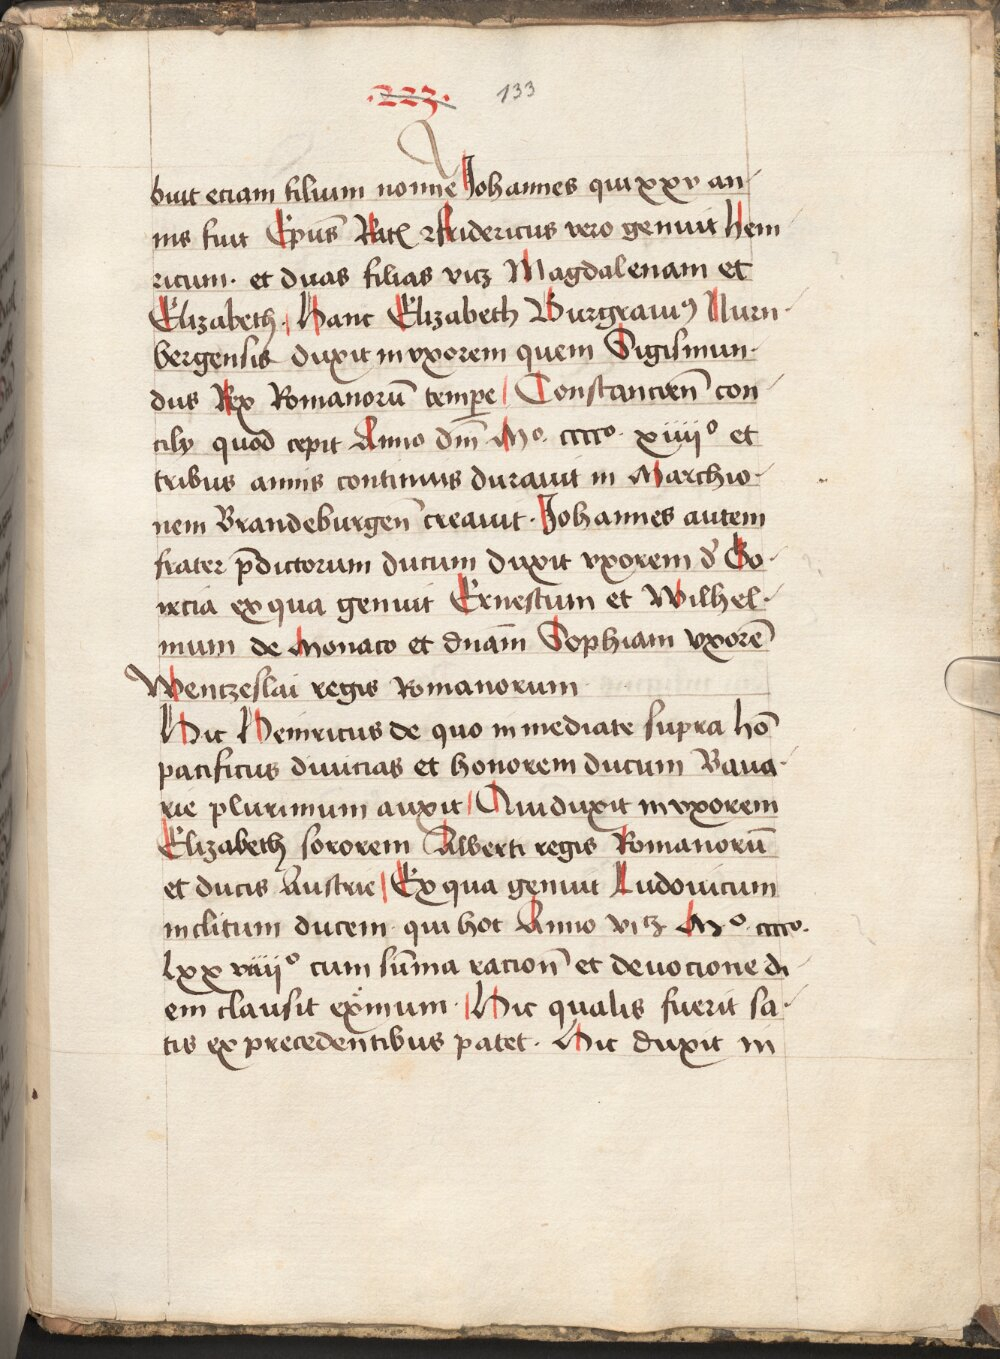 223. 133
buit eciam filium nomine Johannes qui xxv an
nis fuit Epūs Ratꝭ ꝛ Fridericus vero genuit Hein
ricum. et duas filias vicz Magdalenam et
Elizabeth. Hanc Elizabeth Burgrauiꝰ Nurn
bergensis duxit in vxorem quem Sigismun
dus Rex Romanorū tempe Constancien̄ con
cily quod cepit Anno dm̄ Mo. cccco. xiiiio et
tribus annis continuis durauit in Marchio
nem Brandeburgen̄ creauit. Johannes autem
frater p̄dictorum ducum duxit vxorem d' Go
ricia ex qua genuit Ernestum et Wilhel
mum de Monaco et dnām Sophiam vxorē
Wentzeslai regis Romanorum
Hic Heinricus de quo in mediate supra hō
pacificus diuicias et honorem ducum Baua
rie plurimum auxit Qui duxit in vxorem
Elizabeth sororem Alberti regis Romanorū
et ducis Austrie Ex qua genuit Ludouicum
inclitum ducem qui hoc Anno vicz Mo. cccco.
lxx viiiio cum sūma racion̄ et deuocione di
em clausit exmum. Hic qualis fuerit sa
tis ex precedentibus patet. Hic duxit in